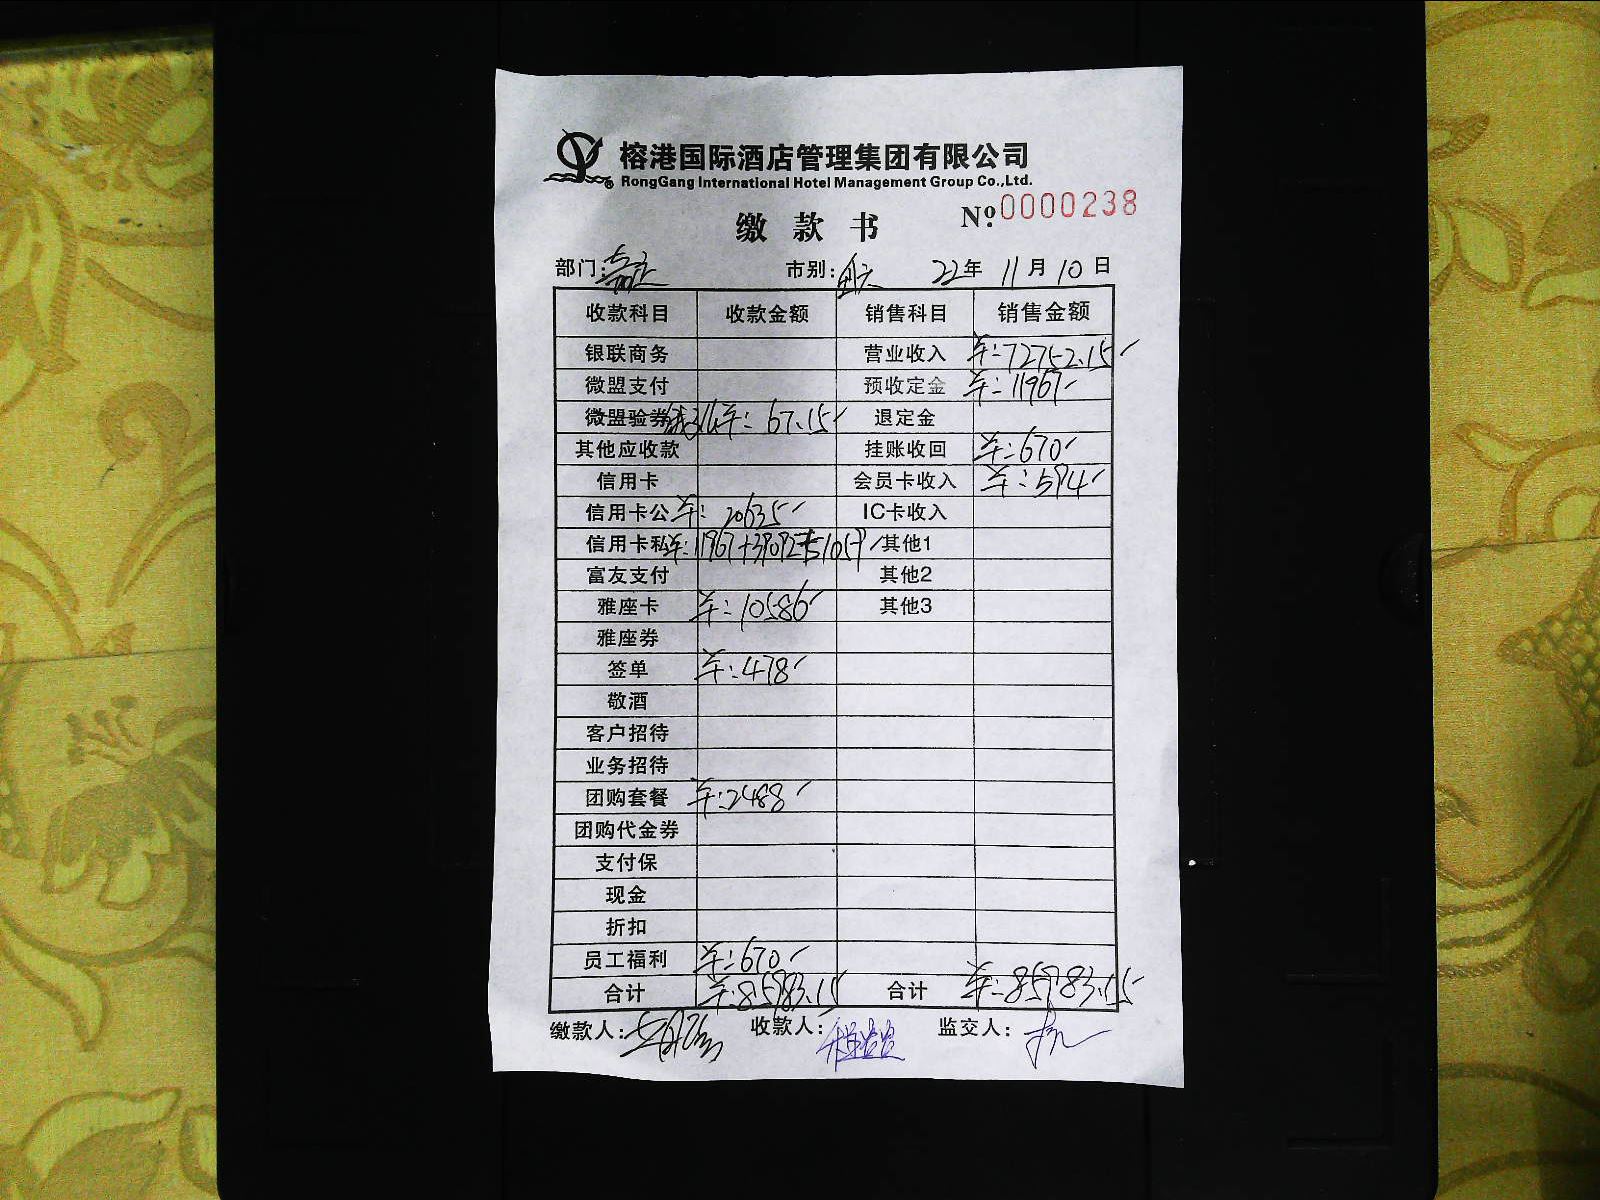 榕港国际酒店管理集团有限公司
RongGang International Hotel Management Group Co.,Ltd.
缴款书 Nº.0000238
部门:嘉定 市别: 22年 11月 10日
收款科目 收款金额 销售科目 销售金额
银联商务 营业收入 ¥:72752.15
微盟支付 预收定金 ¥:11967
微盟验券 ¥:67.15 退定金
其他应收款 挂账收回 ¥:670
信用卡 会员卡收入 ¥:594
信用卡公 ¥:20635 IC卡收入
信用卡私 ¥:11967+39092=51059 其他1
富友支付 其他2
雅座卡 ¥:10586 其他3
雅座券
签单 ¥:478
敬酒
客户招待
业务招待
团购套餐 ¥:2488
团购代金券
支付保
现金
折扣
员工福利 ¥:670
合计 ¥:85983.15 合计 ¥:85983.15
缴款人: 收款人: 监交人: